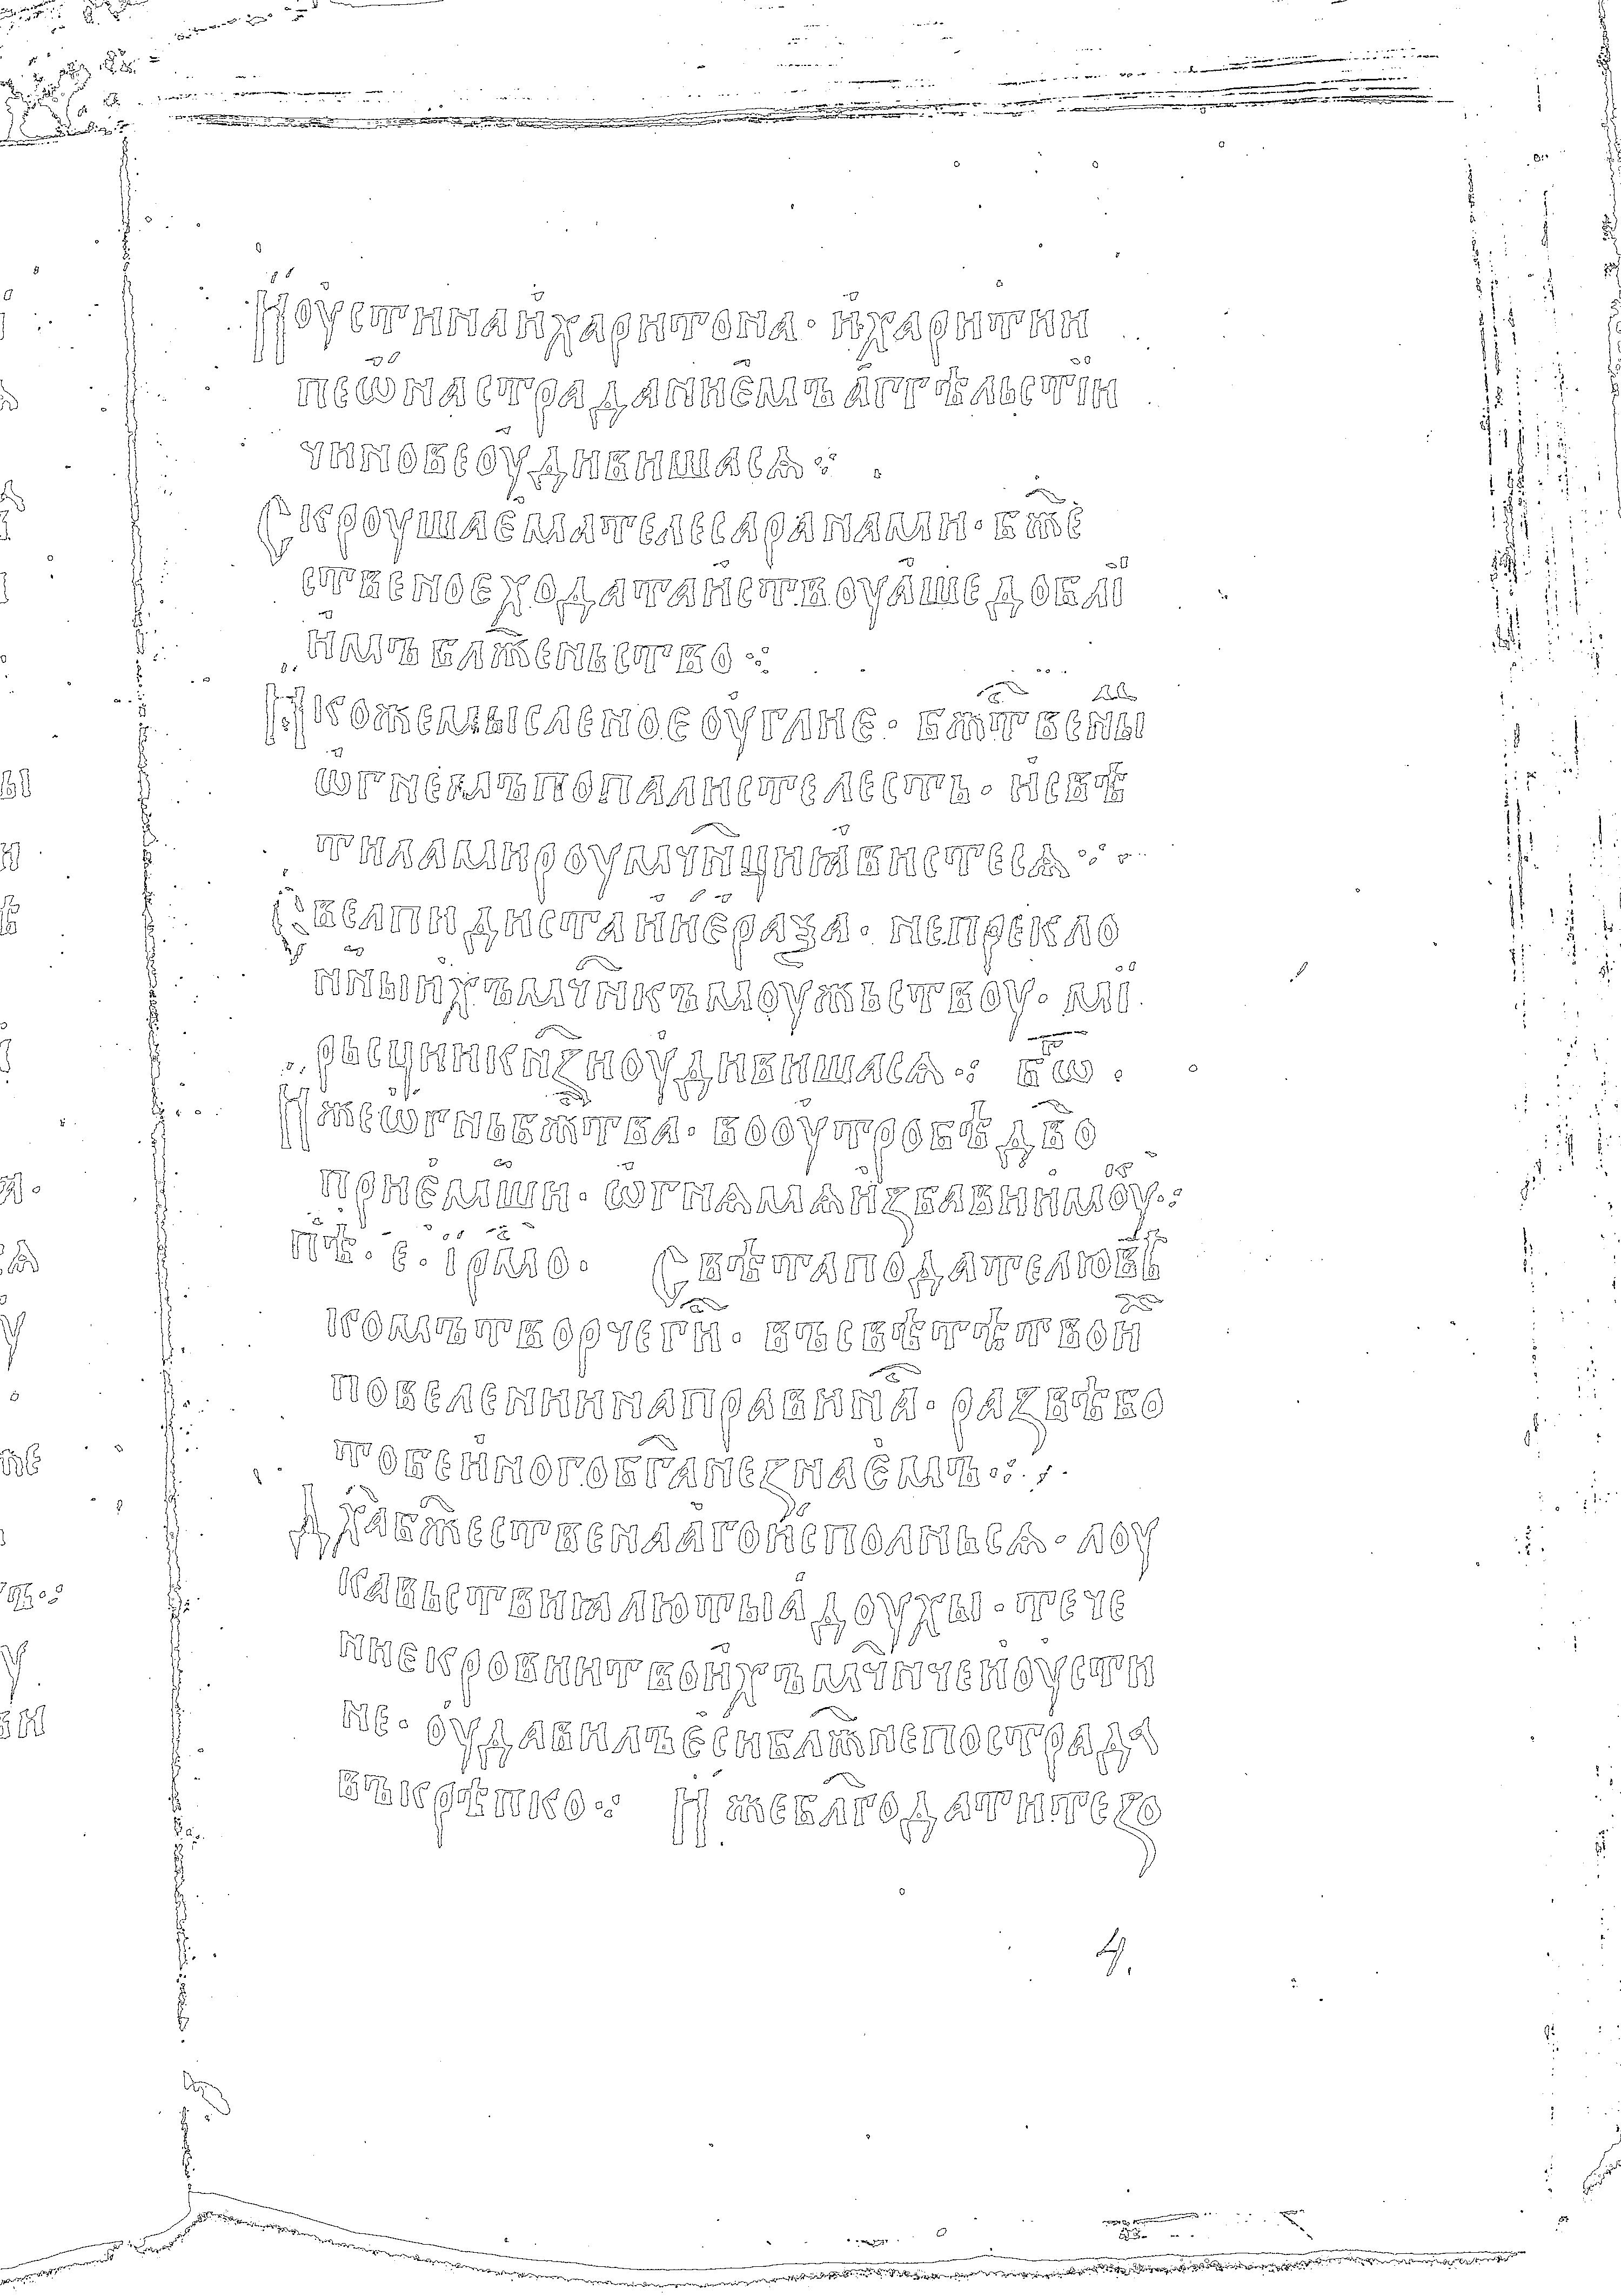 Иоустинаихаритона · ихарити
пеѡнастраданиемъ аггѣльстіи
чиновеоудивишасѧ ⁘
Скроушаематѣлесаранами · бж҃е
ственоеходатаиствоуаше добли
имъ блж҃еньство ⁘
Ꙗкожемысленоеоугл҃ие · бж҃твены
ѡгнемъпопалистелесть · исвѣ
тиламироумч҃нициꙗвистесѧ ⁘
Свеапидистанїераꙁа · непрекло
нныихъмч҃никъмоужьствоу · ми
рьсциикнѧꙁиоудивишасѧ ⁘ бѡ ·
Ижеѡгньбжⷭ҇тва · вооутробѣдв҃о
приемши · ѡгнѧмѧиꙁбавинмоу ⁘
пѣ · е · ірмо · Свѣтаподателювѣ
комътворче ги · въсвѣтѣтвои
повелениинаправинꙑ · раꙁвѣбо
тобеиногобг҃анеꙁнаемъ ⁘
Дх҃абжественааго исполньсѧ · лоу
кавьствиꙗлютыꙗдоухы · тече
ниекровиитвоихъмч҃ничеиоусти
не · оудавилъесиблж҃непострада
въкрѣпко ⁘ Ижебл҃годатитеꙁо
4.